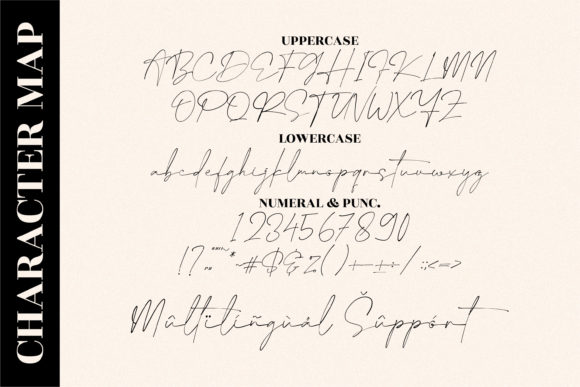 CHARACTER MAP
UPPERCASE
ABCDEFGHIJKLMN
OPQRSTUVWXYZ
LOWERCASE
abcdefghijklmnopqrstuvwxyz
NUMERAL & PUNC.
1234567890
!? ~#$&()+±÷/:;<=>
Mûltïlíñgùál Šûppórt